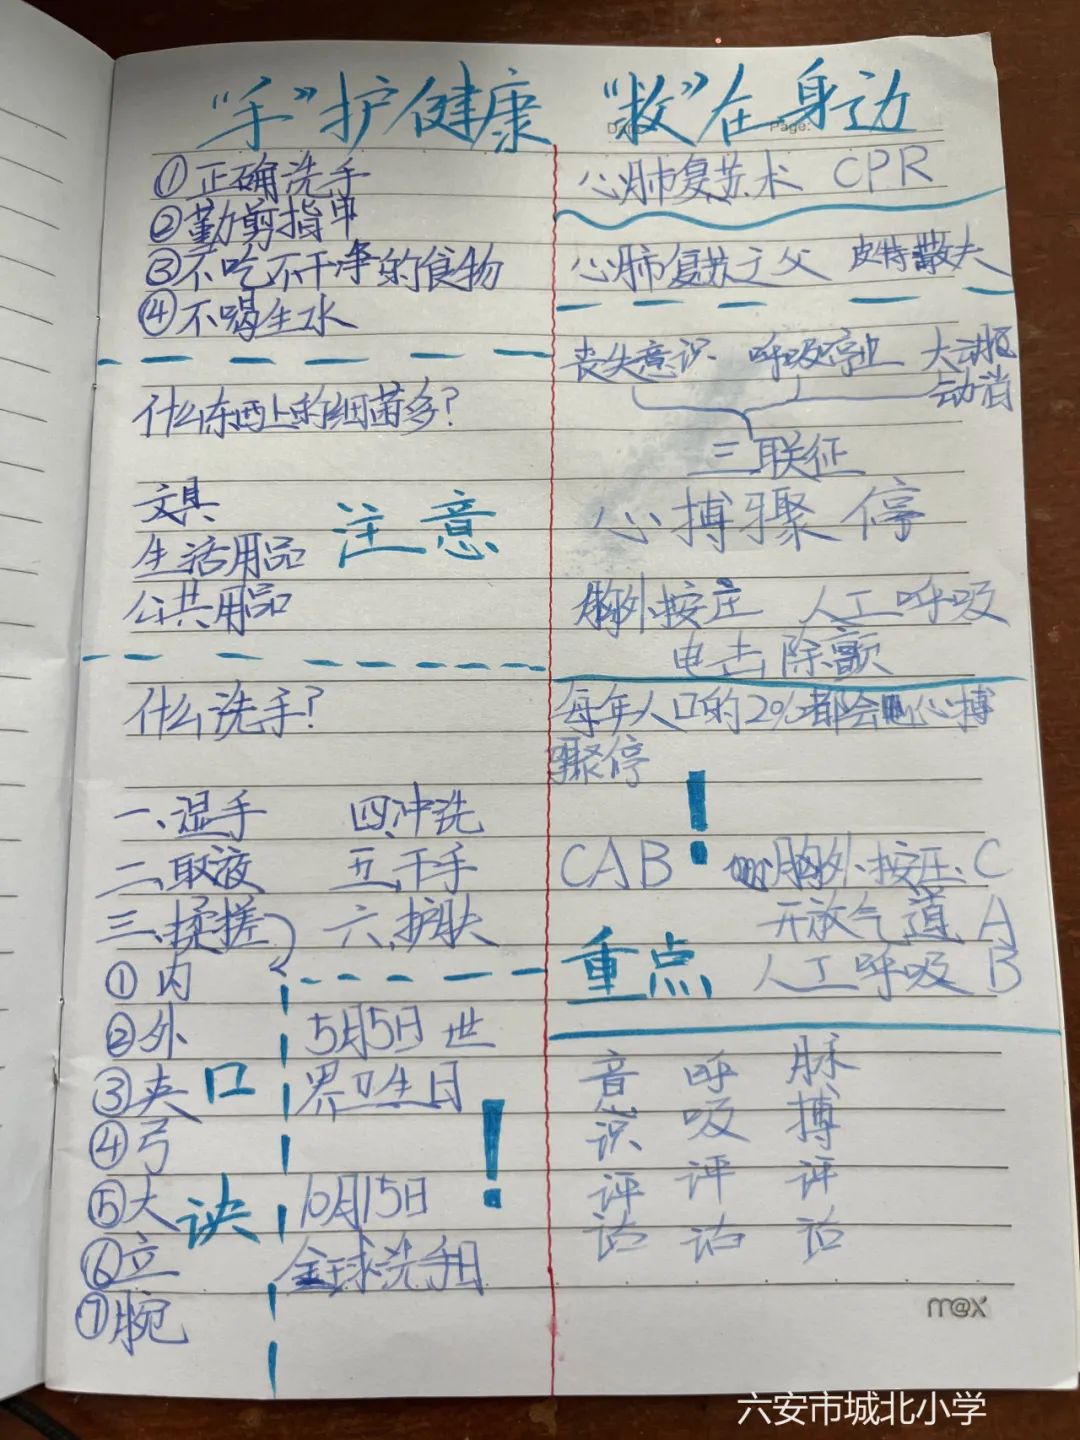 “手”护健康
①正确洗手
②勤剪指甲
③不吃不干净的食物
④不喝生水
什么东西上的细菌多?
文具
生活用品
公共用品
注意
什么洗手?
一、湿手 四、冲洗
二、取液 五、干手
三、揉搓 六、护肤
①内
②外
③夹
④弓
⑤大
⑥立
⑦腕
口诀
5月5日 世
界卫生日
!
10月15日
全球洗手日
“救”在身边
心肺复苏术 CPR
心肺复苏之父 皮特散夫
丧失意识 呼吸停止 大动脉
动消
三联征
心搏骤停
胸外按压 人工呼吸
电击除颤
每年人口的2%都会心搏
骤停
!
CAB 胸外按压、C
开放气道 A
重点 人工呼吸 B
意识评估
呼吸评估
脉搏评估
Page:
m@x
六安市城北小学